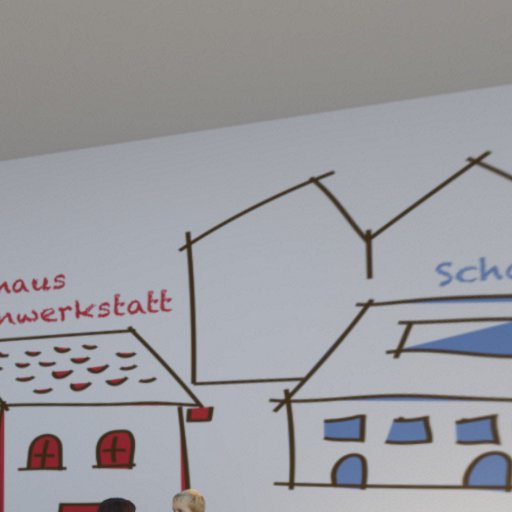 haus
nwerkstatt
Scho